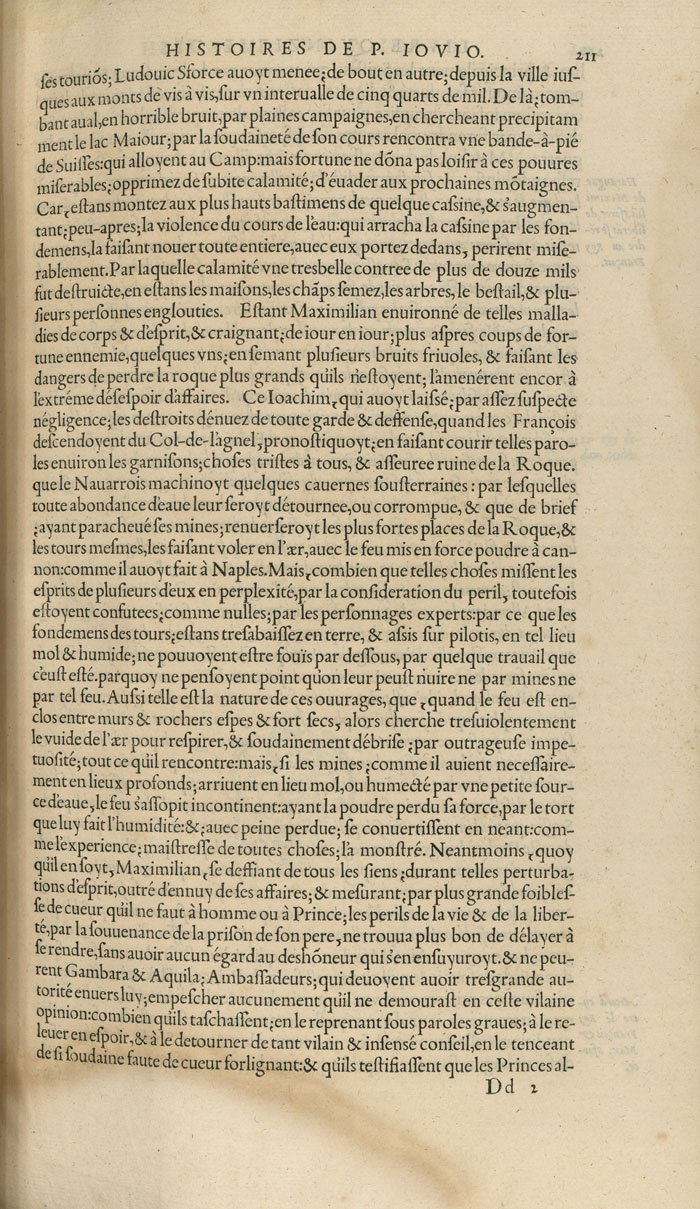 HISTOIRES DE P. IOVIO. 211
ſes touriõs; Ludouic Sforce auoyt menee; de bout en autre; depuis la ville iuſ-
ques aux monts de vis à vis, ſur vn interualle de cinq quarts de mil. De là; tom-
bant aual, en horrible bruit, par plaines campaignes, en chercheant precipitam
ment le lac Maiour; par la ſoudaineté de ſon cours rencontra vne bande-à-pié
de Suiſſes: qui alloyent au Camp: mais fortune ne dõna pas loiſir à ces pouures
miſerables; opprimez de ſubite calamité; d'éuader aux prochaines mõtaignes.
Car, eſtans montez aux plus hauts baſtimens de quelque caſsine, & s'augmen-
tant; peu-apres; la violence du cours de l'eau: qui arracha la caſsine par les fon-
demens, la faiſant nouer toute entiere, auec eux portez dedans, perirent miſe-
rablement. Par laquelle calamité vne tresbelle contree de plus de douze mils
fut deſtruicte, en eſtans les maiſons, les chãps ſemez, les arbres, le beſtail, & plu-
ſieurs perſonnes englouties. Eſtant Maximilian enuironné de telles malla-
dies de corps & d'eſprit, & craignant; de iour en iour; plus aſpres coups de for-
tune ennemie, quelques vns; en ſemant pluſieurs bruits friuoles, & faiſant les
dangers de perdre la roque plus grands qu'ils n'eſtoyent; l'amenérent encor à
l'extréme déſeſpoir d'affaires. Ce Ioachim, qui auoyt laiſſé; par aſſez ſuſpecte
négligence; les deſtroits dénuez de toute garde & deffenſe, quand les François
deſcendoyent du Col-de-l'agnel, pronoſtiquoyt; en faiſant courir telles paro-
les enuiron les garniſons; choſes triſtes à tous, & aſſeuree ruine de la Roque.
que le Nauarrois machinoyt quelques cauernes ſouſterraines: par leſquelles
toute abondance d'eaue leur ſeroyt détournee, ou corrompue, & que de brief
; ayant paracheué ſes mines; renuerſeroyt les plus fortes places de la Roque, &
les tours meſmes, les faiſant voler en l'ær, auec le feu mis en force poudre à can-
non: comme il auoyt fait à Naples. Mais, combien que telles choſes miſſent les
eſprits de pluſieurs d'eux en perplexité, par la conſideration du peril, toutefois
eſtoyent confutees; comme nulles; par les perſonnages experts: par ce que les
fondemens des tours; eſtans treſabaiſſez en terre, & aſsis ſur pilotis, en tel lieu
mol & humide; ne pouuoyent eſtre fouïs par deſſous, par quelque trauail que
c'euſt eſté. parquoy ne penſoyent point qu'on leur peuſt nuire ne par mines ne
par tel feu. Auſsi telle eſt la nature de ces ouurages, que, quand le feu eſt en-
clos entre murs & rochers eſpes & fort ſecs, alors cherche treſuiolentement
le vuide de l'ær pour reſpirer, & ſoudainement débriſe; par outrageuſe impe-
tuoſité; tout ce qu'il rencontre: mais, ſi les mines; comme il auient neceſſaire-
ment en lieux profonds; arriuent en lieu mol, ou humecté par vne petite ſour-
ce d'eaue, le feu s'aſſopit incontinent: ayant la poudre perdu ſa force, par le tort
que luy fait l'humidité: &; auec peine perdue; ſe conuertiſſent en neant: com-
me l'experience; maiſtreſſe de toutes choſes; l'a monſtré. Neantmoins, quoy
qu'il en ſoyt, Maximilian, ſe deffiant de tous les ſiens; durant telles perturba-
tions d'eſprit, outré d'ennuy de ſes affaires; & meſurant; par plus grande foibleſ-
ſe de cueur qu'il ne faut à homme ou à Prince; les perils de la vie & de la liber-
té, par la ſouuenance de la priſon de ſon pere, ne trouua plus bon de délayer à
ſe rendre, ſans auoir aucun égard au deshõneur qui s'en enſuyuroyt. & ne peu-
rent Gambara & Aquila; Ambaſſadeurs; qui deuoyent auoir treſgrande au-
torité enuers luy; empeſcher aucunement qu'il ne demouraſt en ceſte vilaine
opinion: combien qu'ils taſchaſſent; en le reprenant ſous paroles graues; à le re-
leuer en eſpoir, & à le detourner de tant vilain & inſensé conſeil, en le tenceant
de ſi ſoudaine faute de cueur forlignant: & qu'ils teſtifiaſſent que les Princes al-
Dd 2